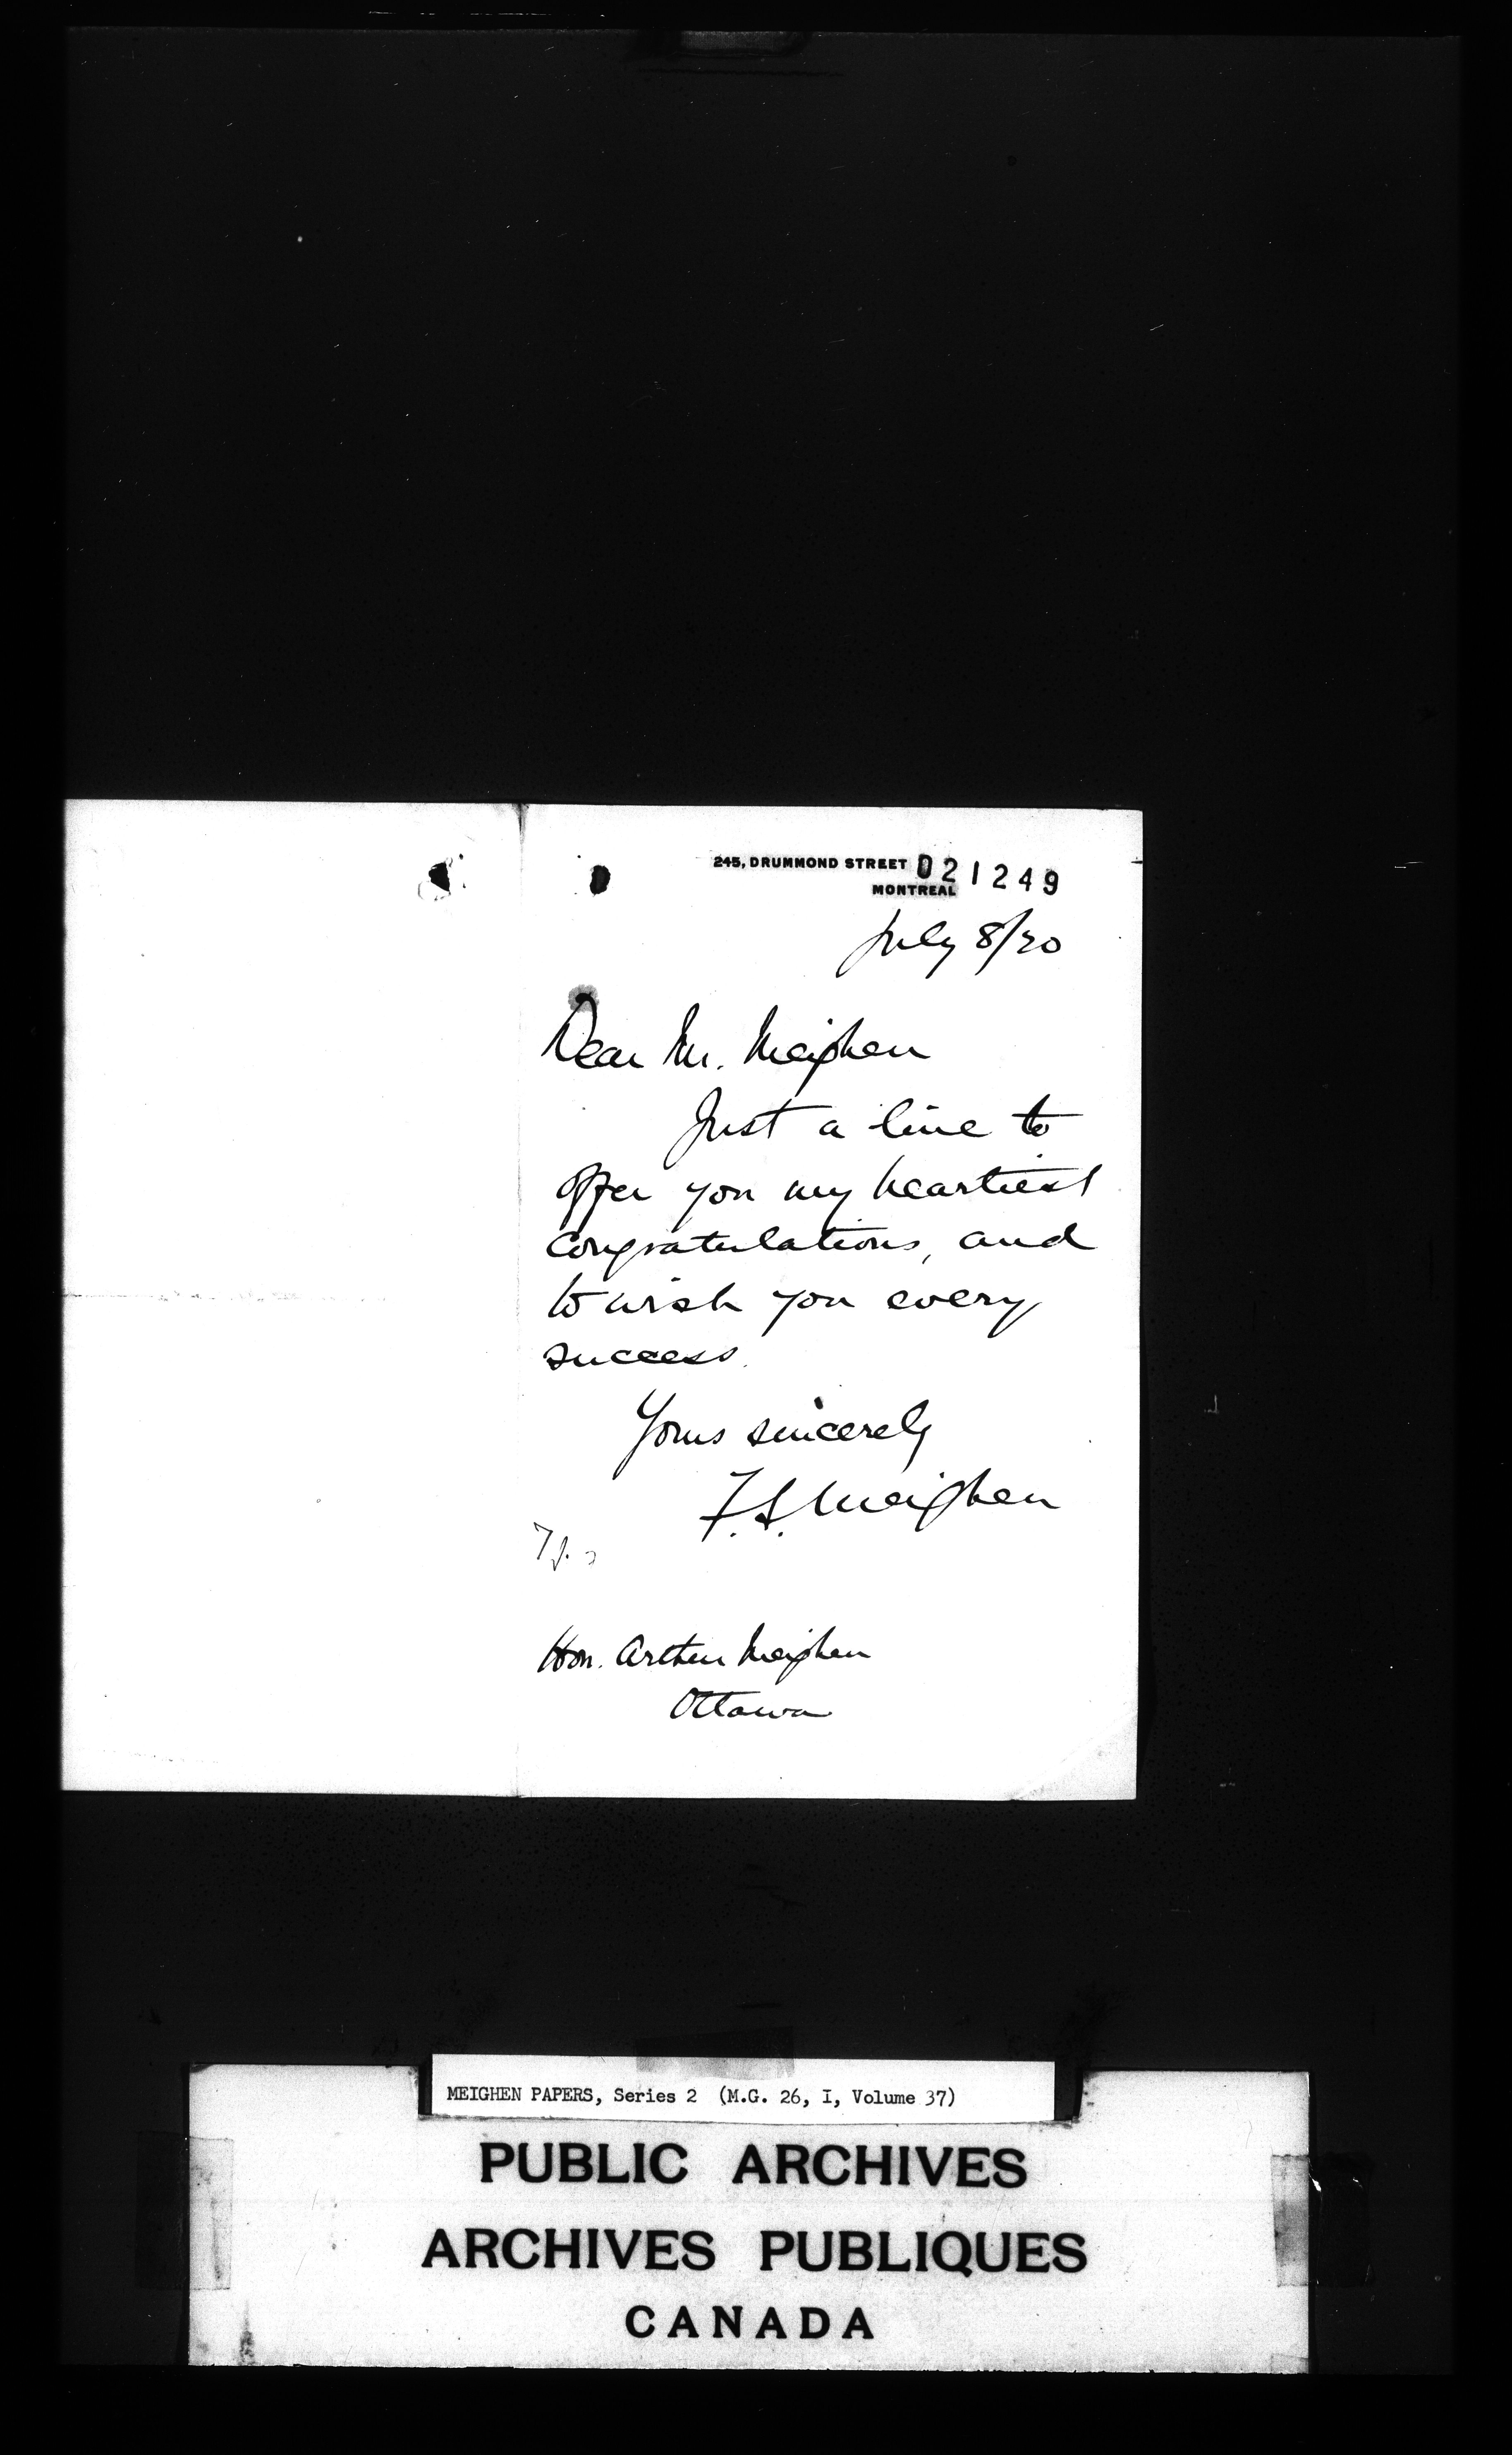 245, DRUMMOND STREET 021249
MONTREAL
July 8/20
Dear Mr. Meighen
Just a line to
offer you my heartiest
congratulations, and
to wish you every
success.
Yours sincerely
F.S. Meighen
Hon. Arthur Meighen
Ottawa
MEIGHEN PAPERS, Series 2 (M.G. 26, I, Volume 37)
PUBLIC ARCHIVES
ARCHIVES PUBLIQUES
CANADA